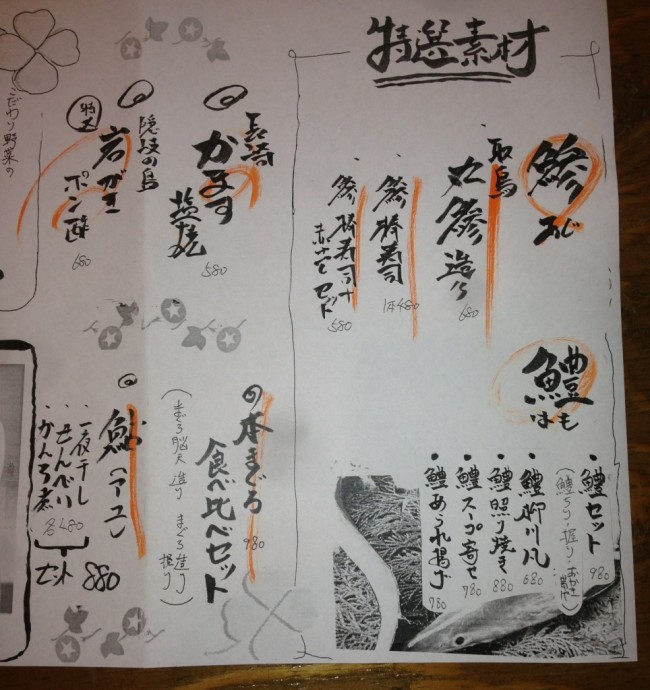 特選素材
鯵
あじ
鳥取
丸鯵造り
680
・鯵棒寿司
1本480
・鯵棒寿司+
赤だしセット
580
鱧
はも
・鱧セット
980
・鱧柳川風
680
・鱧照り焼き
880
・鱧スープ寄せ
780
・鱧あられ揚げ
780
長崎
かます
塩焼
580
隠岐の島
特大
岩がき
ポン酢
680
こだわり野菜の
本まぐろ
食べ比べセット
980
(まぐろ脳天造り まぐろ造り
握り)
鮎(アユ)
・一夜干し
・せんべい
・かんろ煮
各480
セット 880